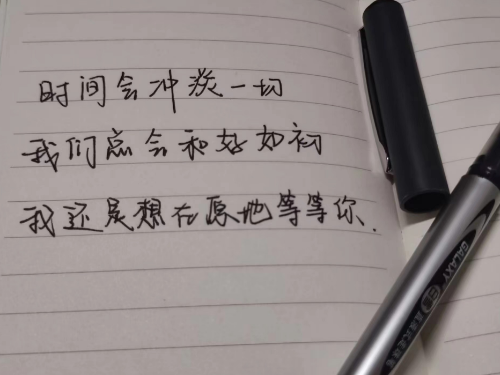 时间会冲淡一切
我们总会和好如初
我还是想在原地等等你.
GALAXY